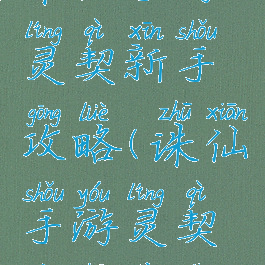 líng qì xīn shǒu
灵契新手
gōng lüè zhū xiān
攻略(诛仙
shǒu yóu líng qì
手游灵契